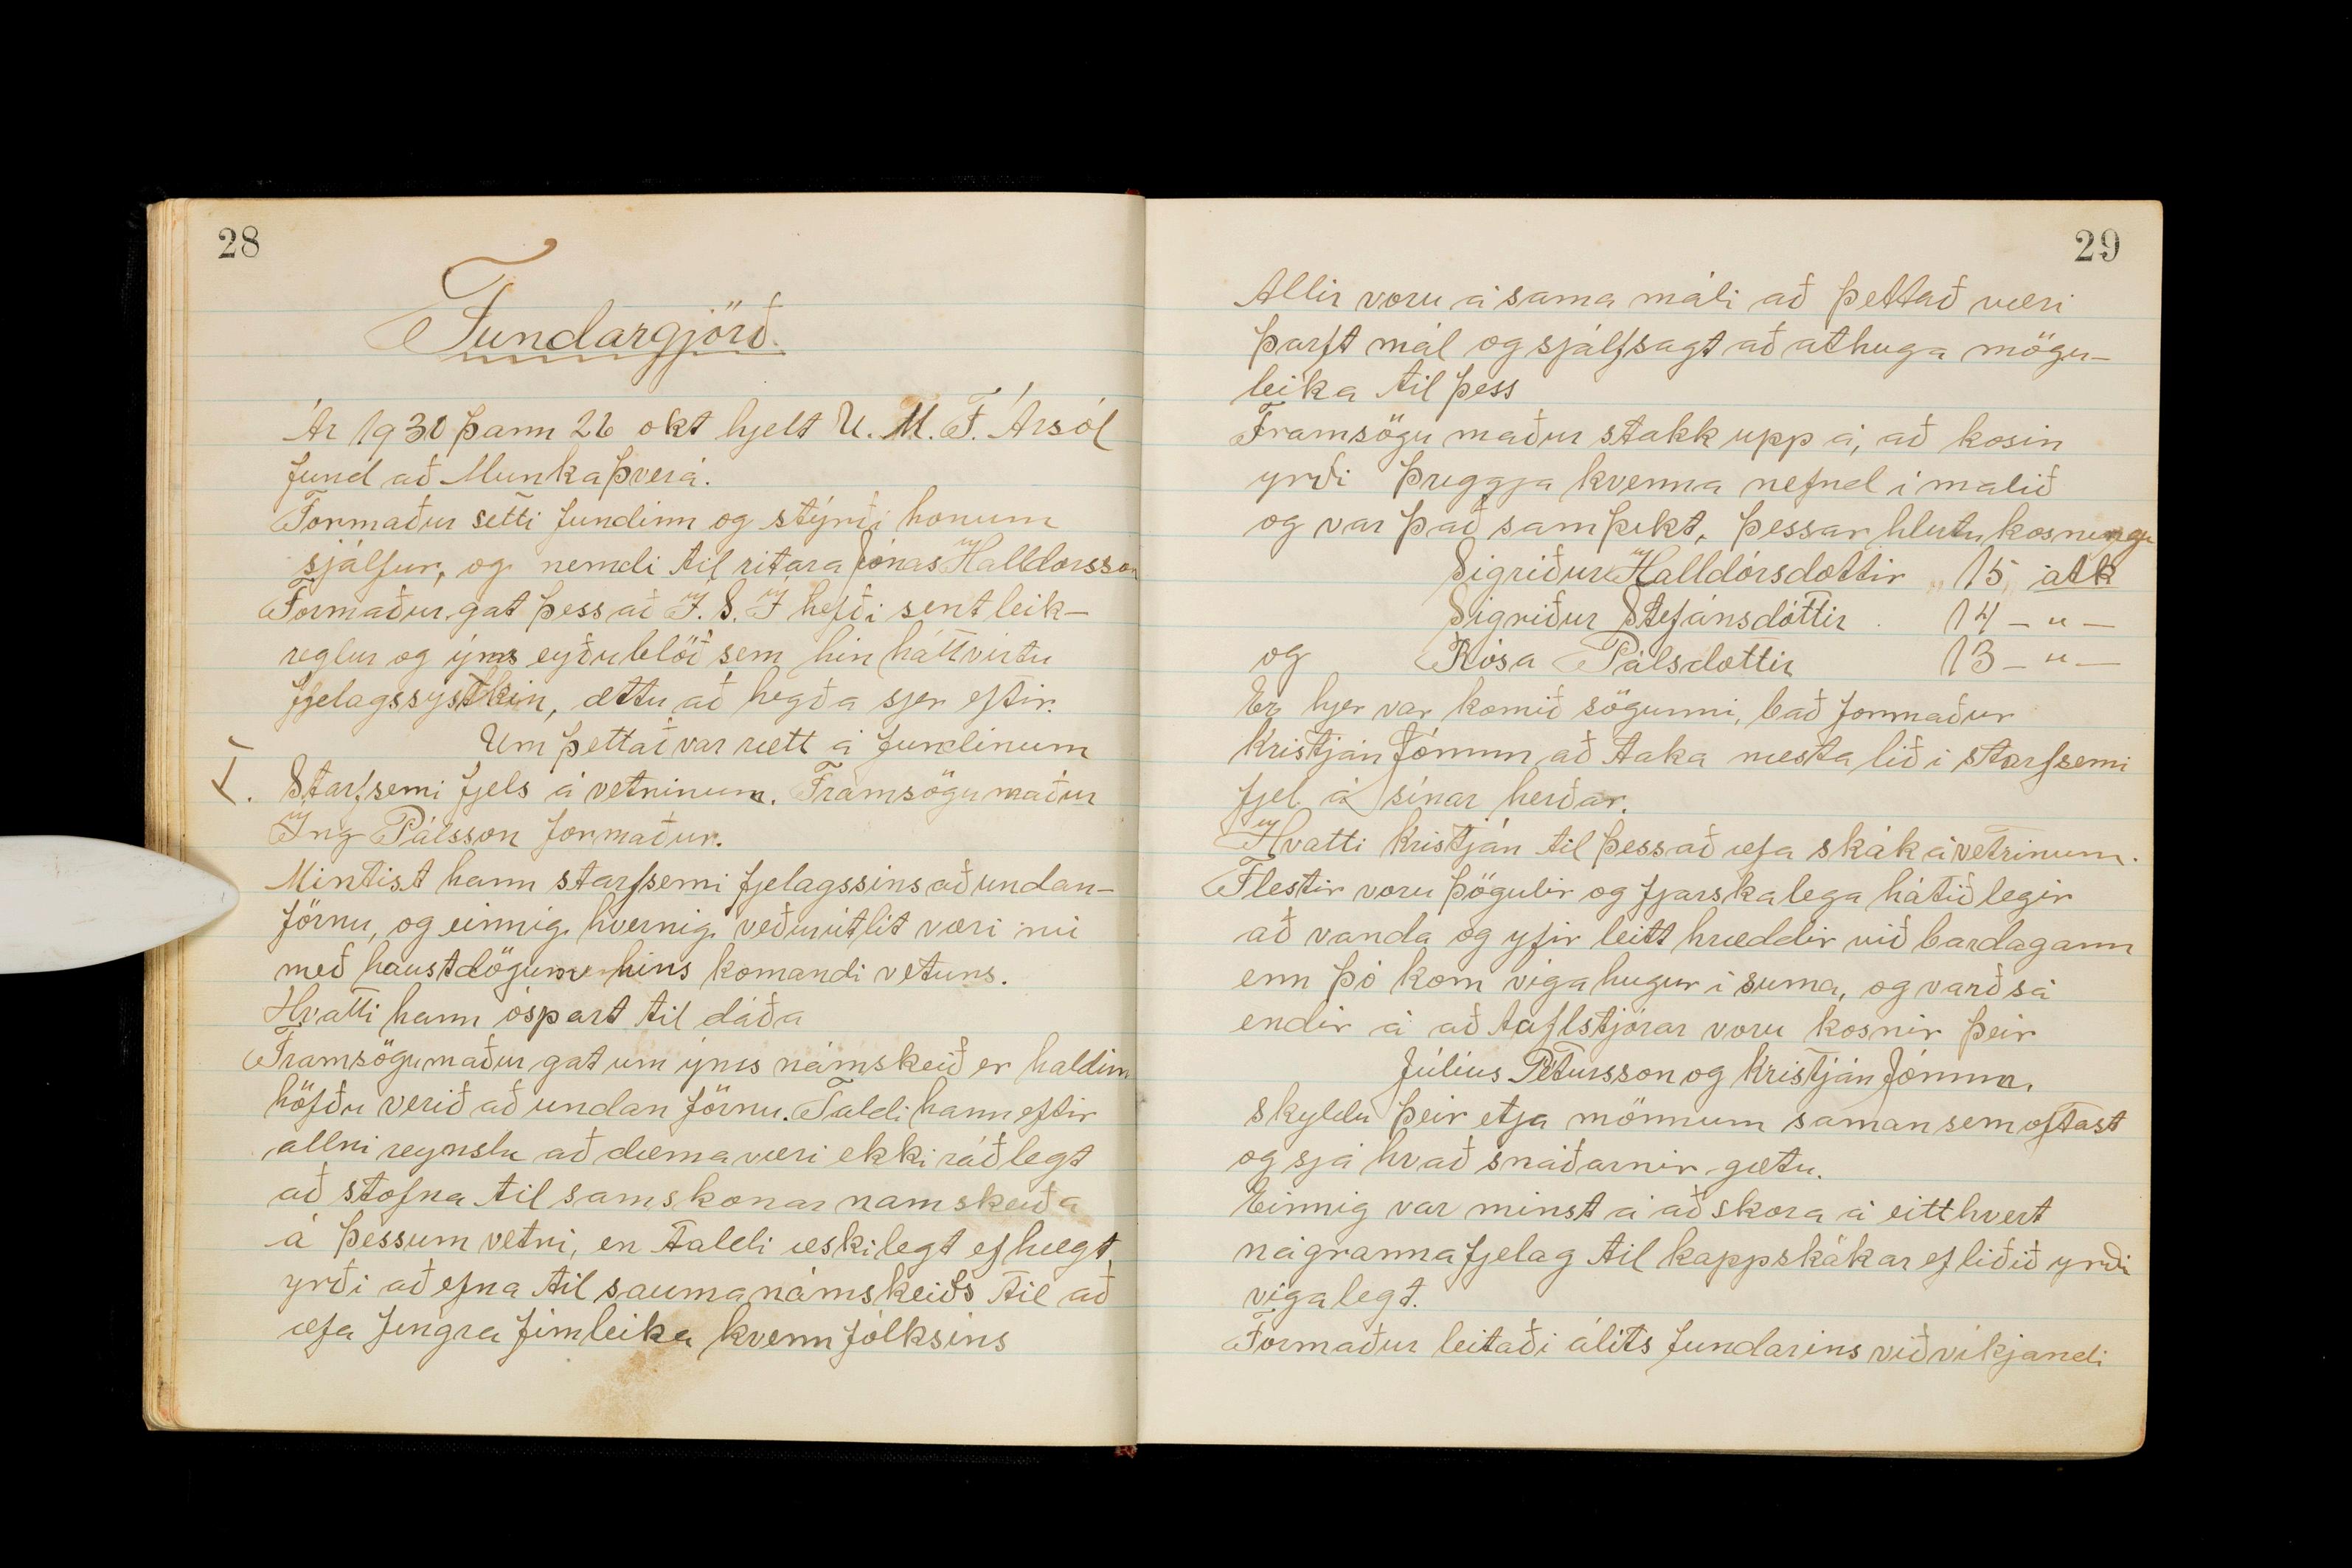 28
Fundargjörð.
Ár 1930 þann 26 okt hjelt U. M. F. Ársól
fund að Munkaþverá.
Formaður setti fundinn og stýrði honum
sjálfur, og nemdi til ritara Jónas Halldorsson
Formaður gat þess að Í. S. Í hefði sent leik-
reglur og ýms eyðublöð sem hin háttvirtu
fjelagssystkin, ættu að hegða sjer eftir.
Um þettað var rætt á fundinum
I. Starfsemi fjels á vetrinum. Framsögumaður
Ing Pálsson formaður.
Mintist hann starfsemi fjelagssins að undan-
förnu, og einnig hvernig veðurútlit væri nú
með haustdögum hins komandi veturs.
Hvatti hann óspart til dáða
Framsögumaður gat um ýms námskeið er haldin
höfðu verið að undan förnu. Taldi hann eftir
allri reynslu að dæma væri ekki ráðlegt
að stofna til samskonar namskeiða
á þessum vetri, en taldi æskilegt ef hægt
yrði að efna til saumanámskeiðs til að
æfa fingra fimleika kvennfólksins
29
Allir voru á sama máli að þettað væri
þarft mál og sjálfsagt að athuga mögu-
leika til þess
Framsögu maður stakk upp á, að kosin
yrði þriggja kvenna nefnd i malið
og var það samþykt, þessar hlutu kosningu
Sigriður Halldórsdottir 15 atk
Sigriður Stefánsdóttir 14 - " -
og Rósa Pálsdottir 13 - " -
Er hjer var komið sögunni, bað formaður
Kristján Jónsson að taka næsta lið i starfsemi
fjel. á sinar herðar.
Hvatti Kristján til þess að æfa skák á vetrinum.
Flestir voru þögulir og fjarskalega hátiðlegir
að vanda og yfir leitt hræddir við bardagann
enn þó kom vigahugur i suma, og varð sá
endir á að taflstjórar voru kosnir þeir
Júlíus Pétursson og Kristján Jónsson.
skyldu þeir etja mönnum saman sem oftast
og sjá hvað snáðarnir gætu.
Einnig var minst á að skora á eitthvert
nágrannafjelag til kappskákar ef liðið yrði
vigalegt.
Formaður leitaði álits fundarins viðvikjandi